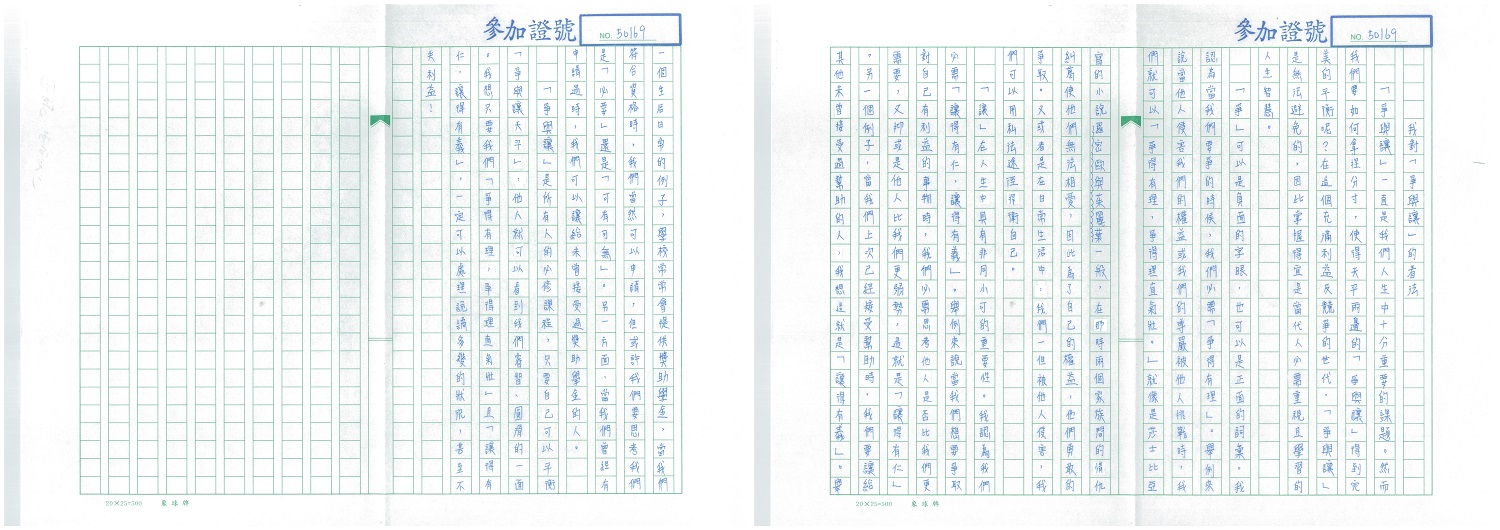 參加證號
NO. 50169
我對「爭與讓」的看法
「爭與讓」一直是我們人生中十分重要的課題。然而
我們要如何拿捏分寸，使得天平兩邊的「爭與讓」得到完
美的平衡呢？在這個充滿利益及競爭的世代，「爭與讓」
是無法避免的，因此掌握得宜是當代人必需重視且學習的
人生智慧。
「爭」可以是負面的字眼，也可以是正面的詞彙。我
認為當我們要爭的時候，我們必需「爭得有理」。舉例來
說當他人侵害我們的權益或我們的尊嚴被他人挑戰時，我
們就可以「爭得有理，爭得理直氣壯。」就像是莎士比亞
寫的小說羅密歐與茱麗葉一般，在即時兩個家族間的情仇
糾葛使他們無法相愛，因此為了自己的權益，他們勇敢的
爭取。又或者是在日常生活中，我們一但被他人侵害，我
們可以用私法途徑保衛自己。
「讓」在人生中具有非同小可的重要性。我認為我們
必需「讓得有仁，讓得有義」。舉例來說當我們想要爭取
對自己有利益的事物時，我們必需思考他人是否比我們更
需要，又抑或是他人比我們更弱勢，這就是「讓得有仁」
。另一個例子，當我們上次已經接受幫助時，我們要讓給
其他未曾接受過幫助的人，我想這就是「讓得有義」。舉
參加證號
NO. 50169
一個生活日常的例子，學校常常會提供獎助學金，當我們
符合資格時，我們當然可以申請，但或許我們要思考我們
是「必要」還是「可有可無」。另一方面，當我們曾經有
申請過時，我們可以讓給未曾接受過獎助學金的人。
「爭與讓」是所有人的必修課程，只要自己可以平衡
「爭與讓天平」，他人就可以看到我們睿智、圓滑的一面
。我想只要我們「爭得有理，爭得理直氣壯」且「讓得有
仁，讓得有義」，一定可以處理詭譎多變的狀況，甚至不
失利益！
20×25=500 象球牌
20×25=500 象球牌